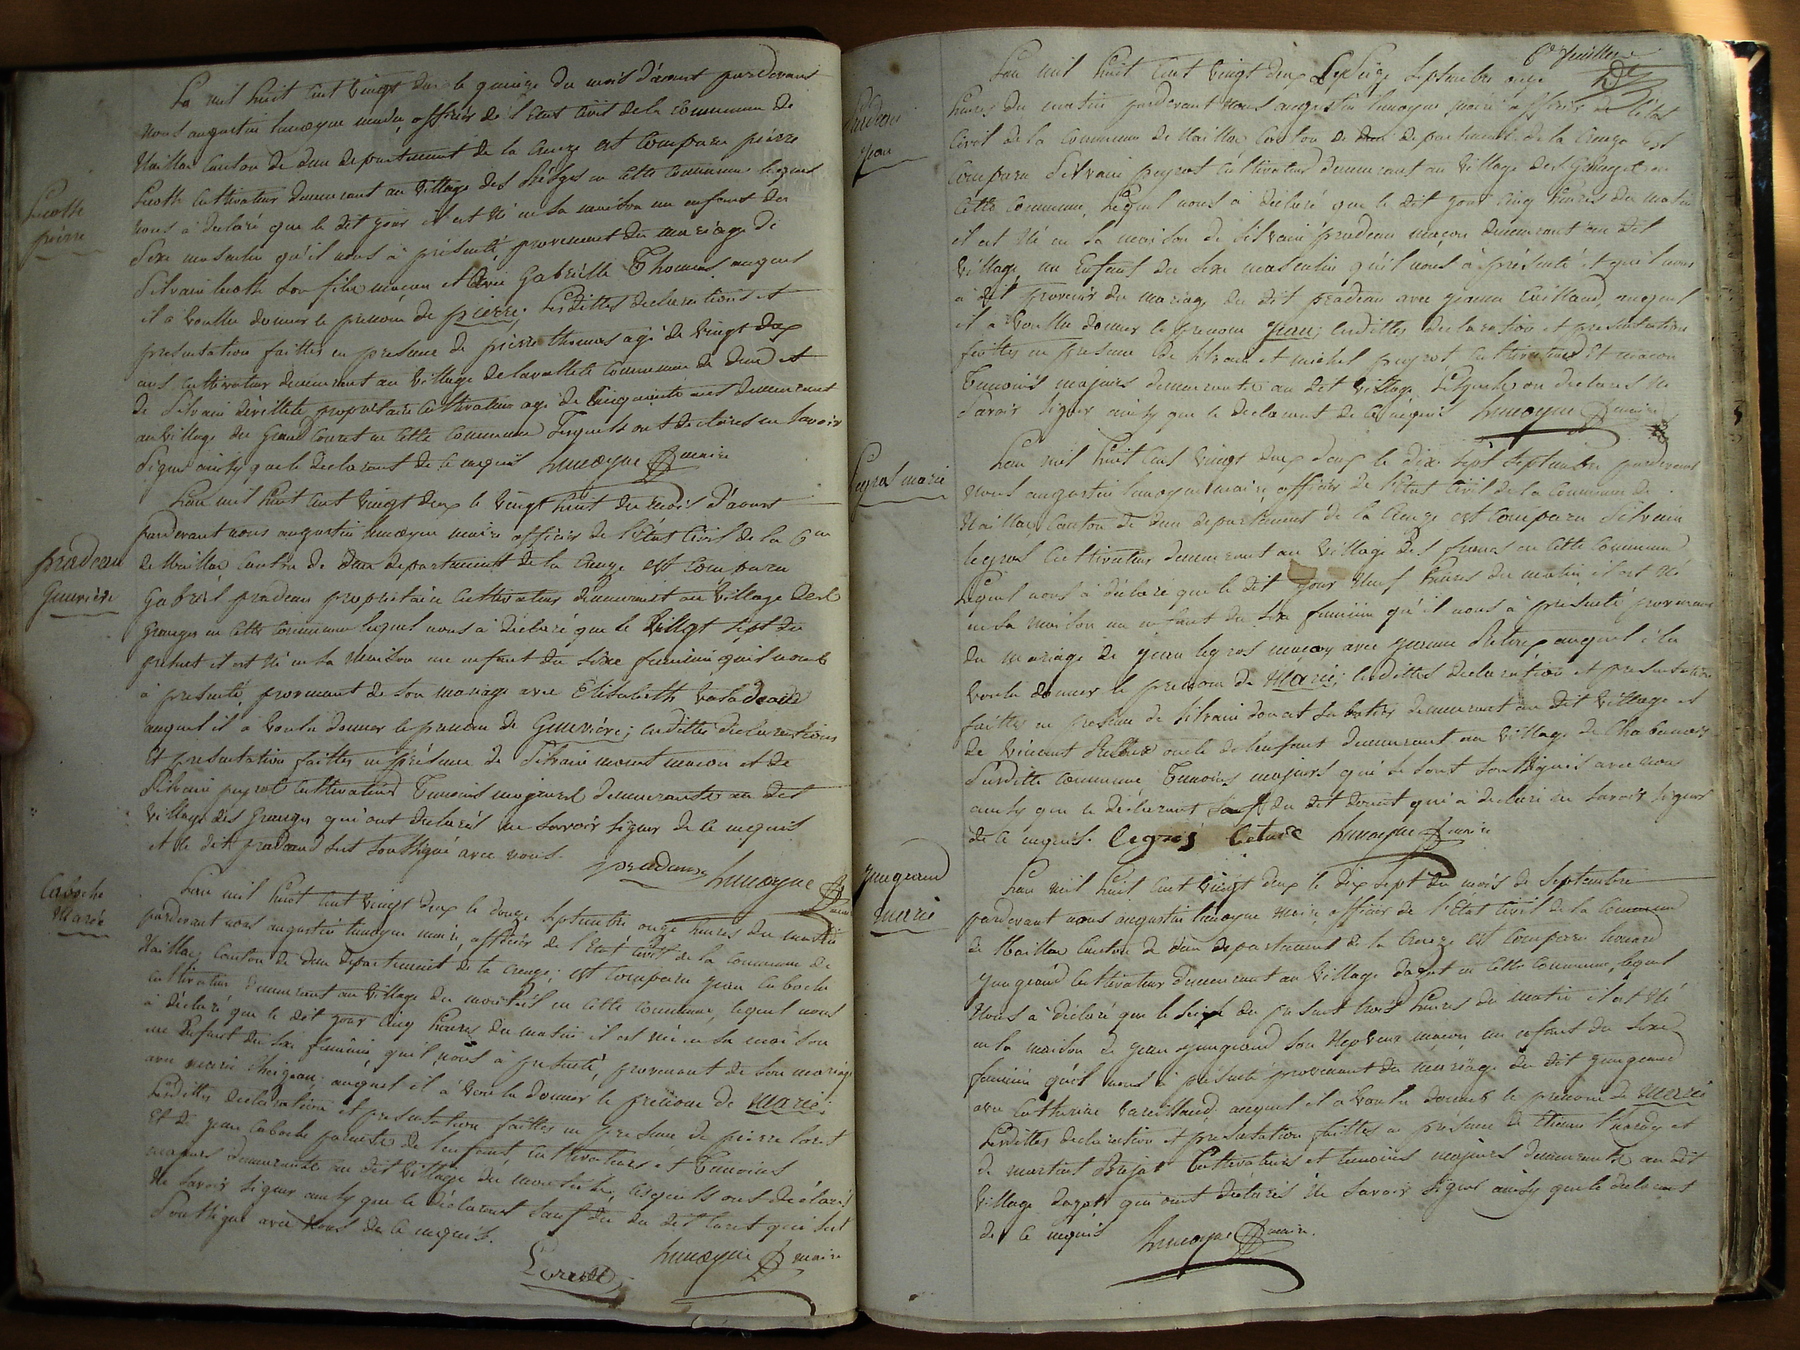 La mil huit cent vingt deux le quinze du mois d'aoust pardevant
nous augustin lmoyne maire, officier de l'Etat Civil de la commune de
Naillac canton de dun departement de la Creuze est comparu pierre
cultivateur demeurant au village des en cette commune lequel
nous à declaré que le dit jour il est né en sa maison un enfant du
sixe masculin qu'il nous à présenté, provenant du mariage de
Silvain son fils maçon et Gabrielle Thomas auquel
il à voullu donner le prenom de pierre; lesdittes declarations et
presentation faittes en presence de pierre thomas agé de vingt deux
ans cultivateur demeurant au village de lavallette commune de dun et
de Silvain propriétaire cultivateur agé de Cinquante ans demeurant
au village du Grand en cette commune lesquels ont declarés ne savoir
signer ainsy que le declarant de ce requis maire
Lucotte
pierre
Lan mil huit cent vingt deux le vingt huit du mois d'aoust
pardevant nous augustin maire officier de l'Etat Civil de la Cne
de Naillac canton de dun departement de la Creuze est comparu
Gabriel pradeau propriétaire cultivateur demeurant au village des
Granges en cette commune lequel nous à déclaré que le vingt sept du
present il est né en sa maison un enfant du sixe feminin qu'il nous
à presenté, provenant de son mariage avec Elisabeth
auquel il à voulu donner le prenom de Genevieve; lesdittes declarations
et presentation faittes en présence de Silvain maçon et de
Silvain peyrot cultivateur Temoins majeurs demeurants au dit
village des Granges qui ont declarés ne savoir signer de ce requis
et le dit pradeau sest soussigné avec nous.
pradeau
pradeau
Genevieve
Lan mil huit cent vingt deux le douze septembre onze heures du matin
pardevant nous augustin maire, officier de l'Etat Civil de la commune de
Naillac, canton de dun departement de la Creuze; est comparu jean caboche
cultivateur demeurant au village du en cette commune, lequel nous
à déclaré que le dit jour cinq heures du matin il est né en sa maison
un Enfant du sixe feminin, qu'il nous à presenté, provenant de son mariage
avec marie auquel il à voulu donner le prenom de Marie;
Lesdittes declaration et presentation faittes en presence de pierre loret
Et de jean caboche parents de lenfant, cultivateurs et Temoins
majeurs demeurants au dit village du lesquels ont declarés
Ne savoir signer ainsy que le declarant sauf du dit loret qui sest
Soussigné avec Nous de ce requis.
maire
Caboche
Marie
6e feuille
Lan mil huit cent vingt deux Le seize septembre onze
heures du matin pardevant Nous augustin maire officier de l'Etat
Civil de la commune de Naillac canton de dun departement de la Creuze est
comparu Silvain peyrot cultivateur demeurant au village des Granges en
cette commune, lequel nous à déclaré que le dit jour cinq heures du matin
il est né en la maison de Silvain pradeau maçon demeurant au dit
village, un Enfant du sixe masculin qu'il nous à présenté et qu'il nous
à dit provenir du mariage du dit pradeau avec jeanne auquel
il à voullu donner le prenom jean; lesdittes declaration et presentation
faittes en presence de Silvain et michel peyrot, cultivateur Et maçon
Temoins majeurs demeurants au dit village, lesquels on declarés Ne
savoir signer ainsy que le declarant de ce requis maire
pradeau
jean
Lan mil huit cent vingt deux le dix sept septembre pardevant
nous augustin maire, officier de l'Etat Civil de la Commune de
Naillac, Canton de dun departement de la Creuze est comparu Silvain
legros cultivateur demeurant au village des en cette commune
Lequel nous à déclaré que le dit jour Neuf heures du matin, il est Né
en sa maison un enfant du sixe feminin qu'il nous à présenté provenant
du mariage de jean legros maçon avec jeanne auquel il à
voulu donner le prenom de Marie; lesdittes declaration et presentation
faittes en presence de Silvain sabotier demeurant au dit village et
de Vincent oncle de lenfant demeurant au village de
Susditte commune Temoins majeurs qui se sont soussignés avec nous
ainsy que le déclarant sauf du dit qui à declaré ne savoir signer
de ce requis. legros maire
Legros marie
Lan mil huit cent vingt deux le dix sept du mois de Septembre
pardevant nous augustin maire officier de l'Etat Civil de la Commune
de Naillac canton de dun departement de la Creuze est comparu
jeangeand cultivateur demeurant au village en cette commune, lequel
Nous à déclaré que le seize du present trois heures du matin il est Né
en la maison de jean jeangeand son Neveux maçon, un enfant du sixe
feminin qu'il nous à présenté provenant du mariage du dit jeangeand
avec Catherine auquel il à voulu donner le prenom de Marie
Lesdittes declaration et presentation faittes en présence de Etienne et
de martial Cultivateurs et temoins majeurs demeurants au dit
village qui ont declarés Ne savoir signer ainsy que le declarant
de ce requis maire.
jeangeand
marie